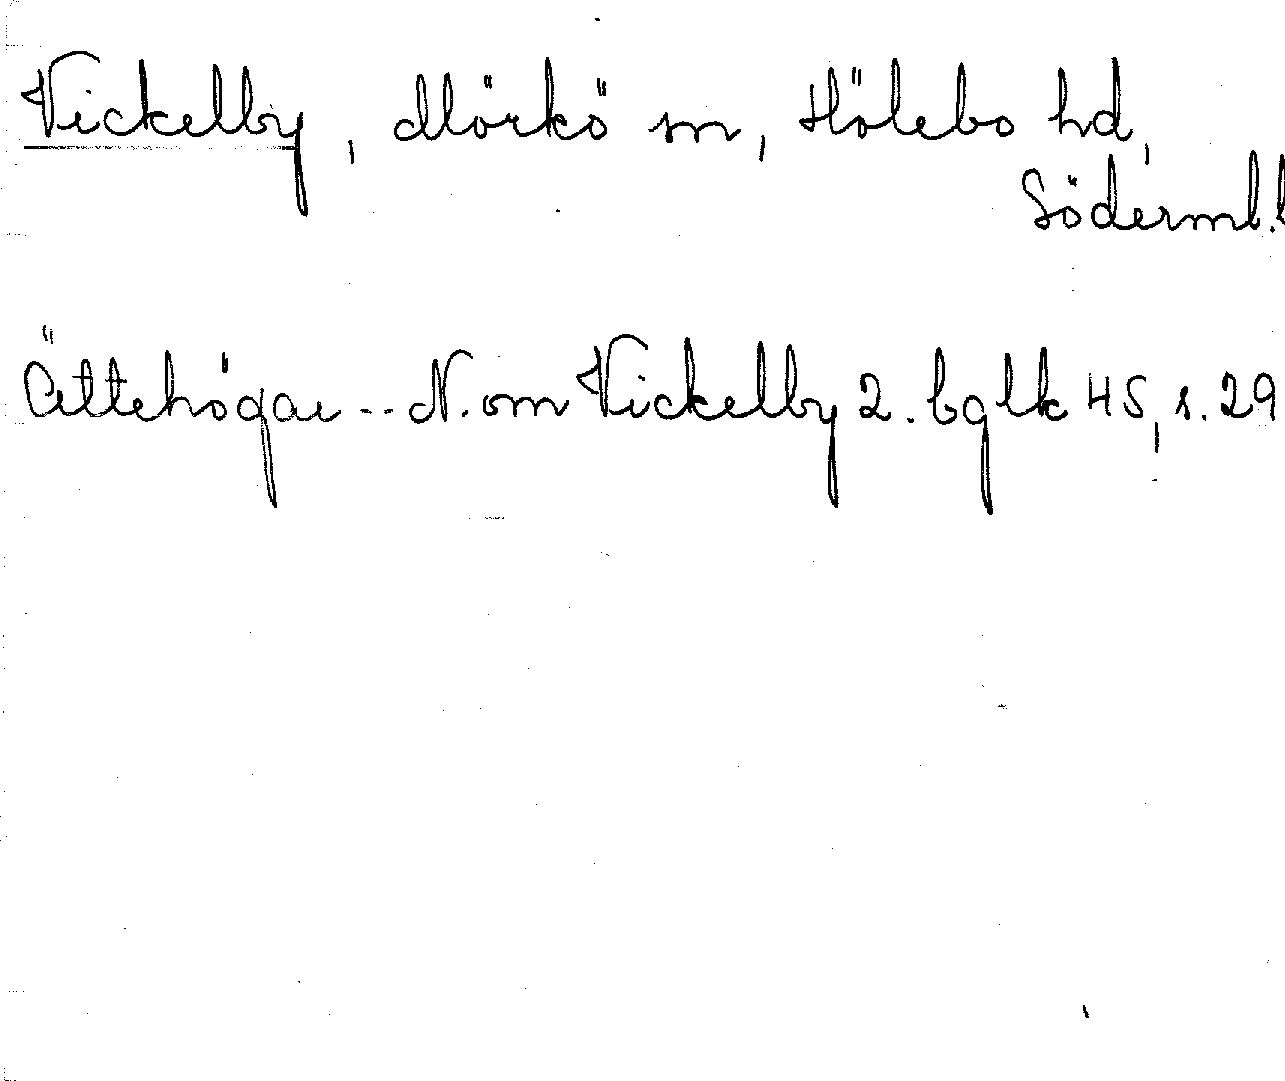 Vickelby, Mörkö sn, Hölebo hd,
Söderml. l
Ättehögar -- N. om Vickelby 2. bglk 45, s. 29